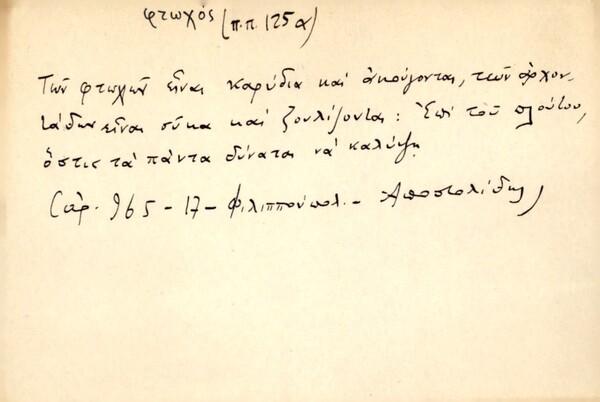 φτωχός (π.π. 125α)
Τῶν φτωχῶν εἶναι καρύδια καί ἀκούγονται, τῶν ἀρχον-
τάδων εἶναι σῦκα καί ζουλίζονται: Ἐπί τοῦ πλούτου,
ὅστις τά πάντα δύναται νά καλύψῃ
(ἀρ. 965 - 17 - Φιλιππούπολ. - Ἀποστολίδης)